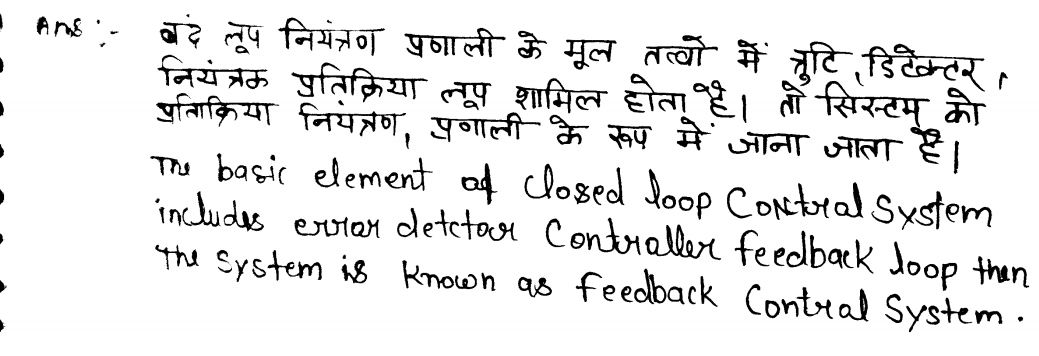 Ans :- बंद लूप नियंत्रण प्रणाली के मूल तत्वों में त्रुटि, डिटेक्टर,
नियंत्रक प्रतिक्रिया लूप शामिल होता है। तो सिस्टम को
प्रतिक्रिया नियंत्रण, प्रणाली के रूप में जाना जाता है।
The basic element of Closed loop Control System
includes error detctor Controller feedback loop then
the System is known as feedback Control System.